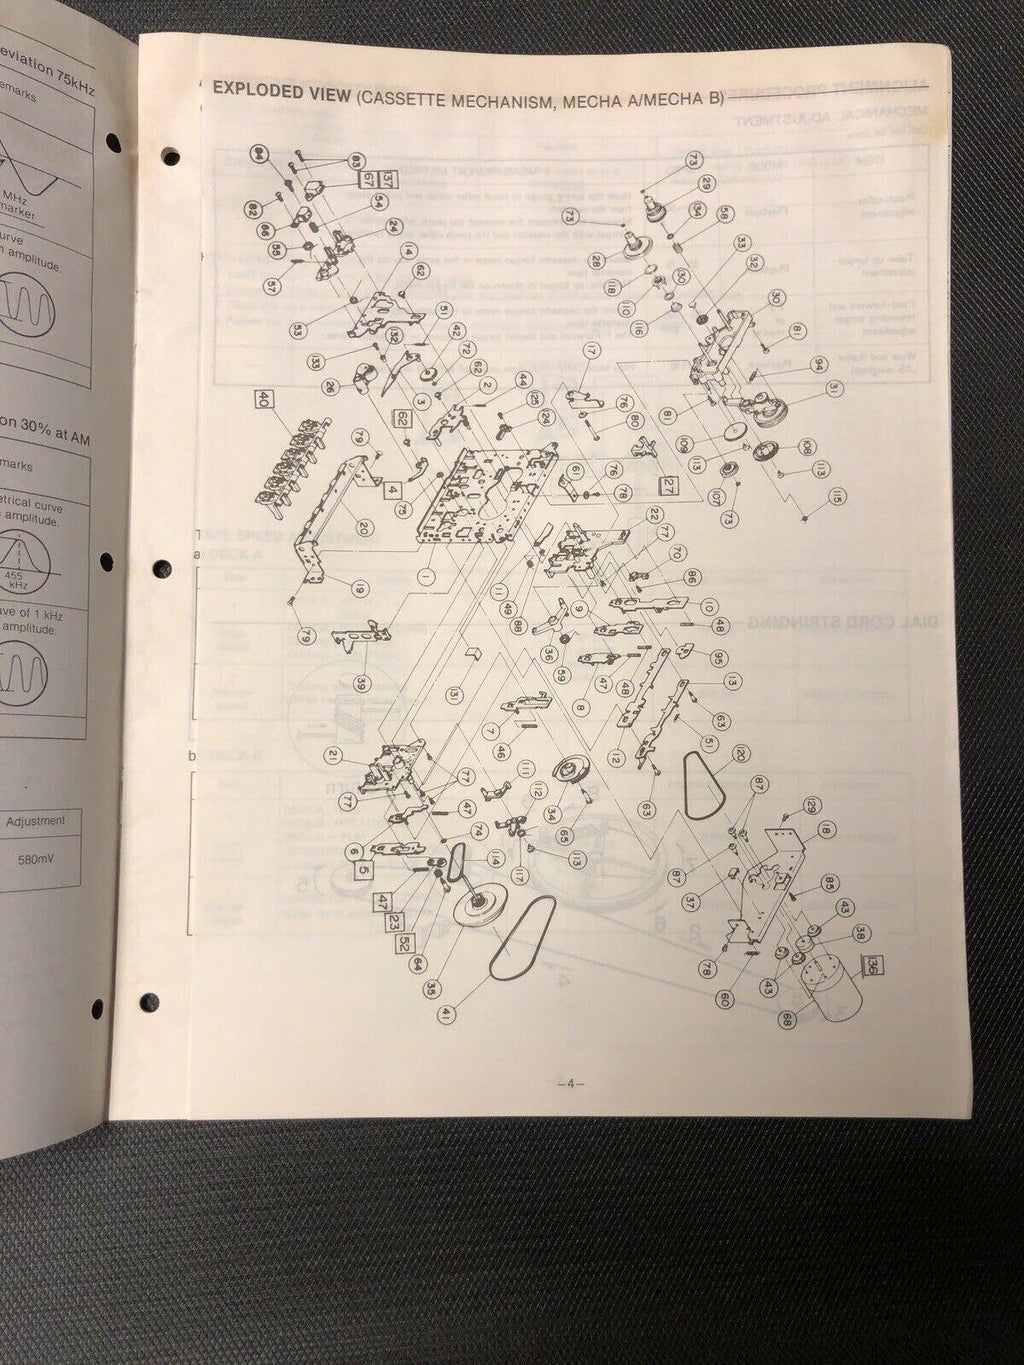 eviation 75kHz
emarks
MHz
marker
urve
n amplitude.
on 30% at AM
marks
etrical curve
amplitude.
455
kHz
ave of 1 kHz
amplitude.
Adjustment
580mV
EXPLODED VIEW (CASSETTE MECHANISM, MECHA A/MECHA B)
84
83
67
137
82
66
54
24
55
14
62
57
53
51
133
32
42
26
72
62
3
2
44
40
79
62
125
124
4
75
20
1
19
79
39
131
73
29
134
58
73
33
32
28
118
110
130
116
30
81
17
94
31
76
80
81
109
113
108
113
107
73
115
127
61
76
78
22
77
70
86
11
49
88
9
10
48
36
59
47
8
48
95
13
7
46
12
63
51
120
21
77
77
111
112
34
65
63
87
129
18
6
5
47
74
114
117
113
87
37
85
47
23
52
64
35
41
43
38
136
78
60
43
68
a
b
DIAL CORD STRINGING
MECHANICAL ADJUSTMENT
–4–